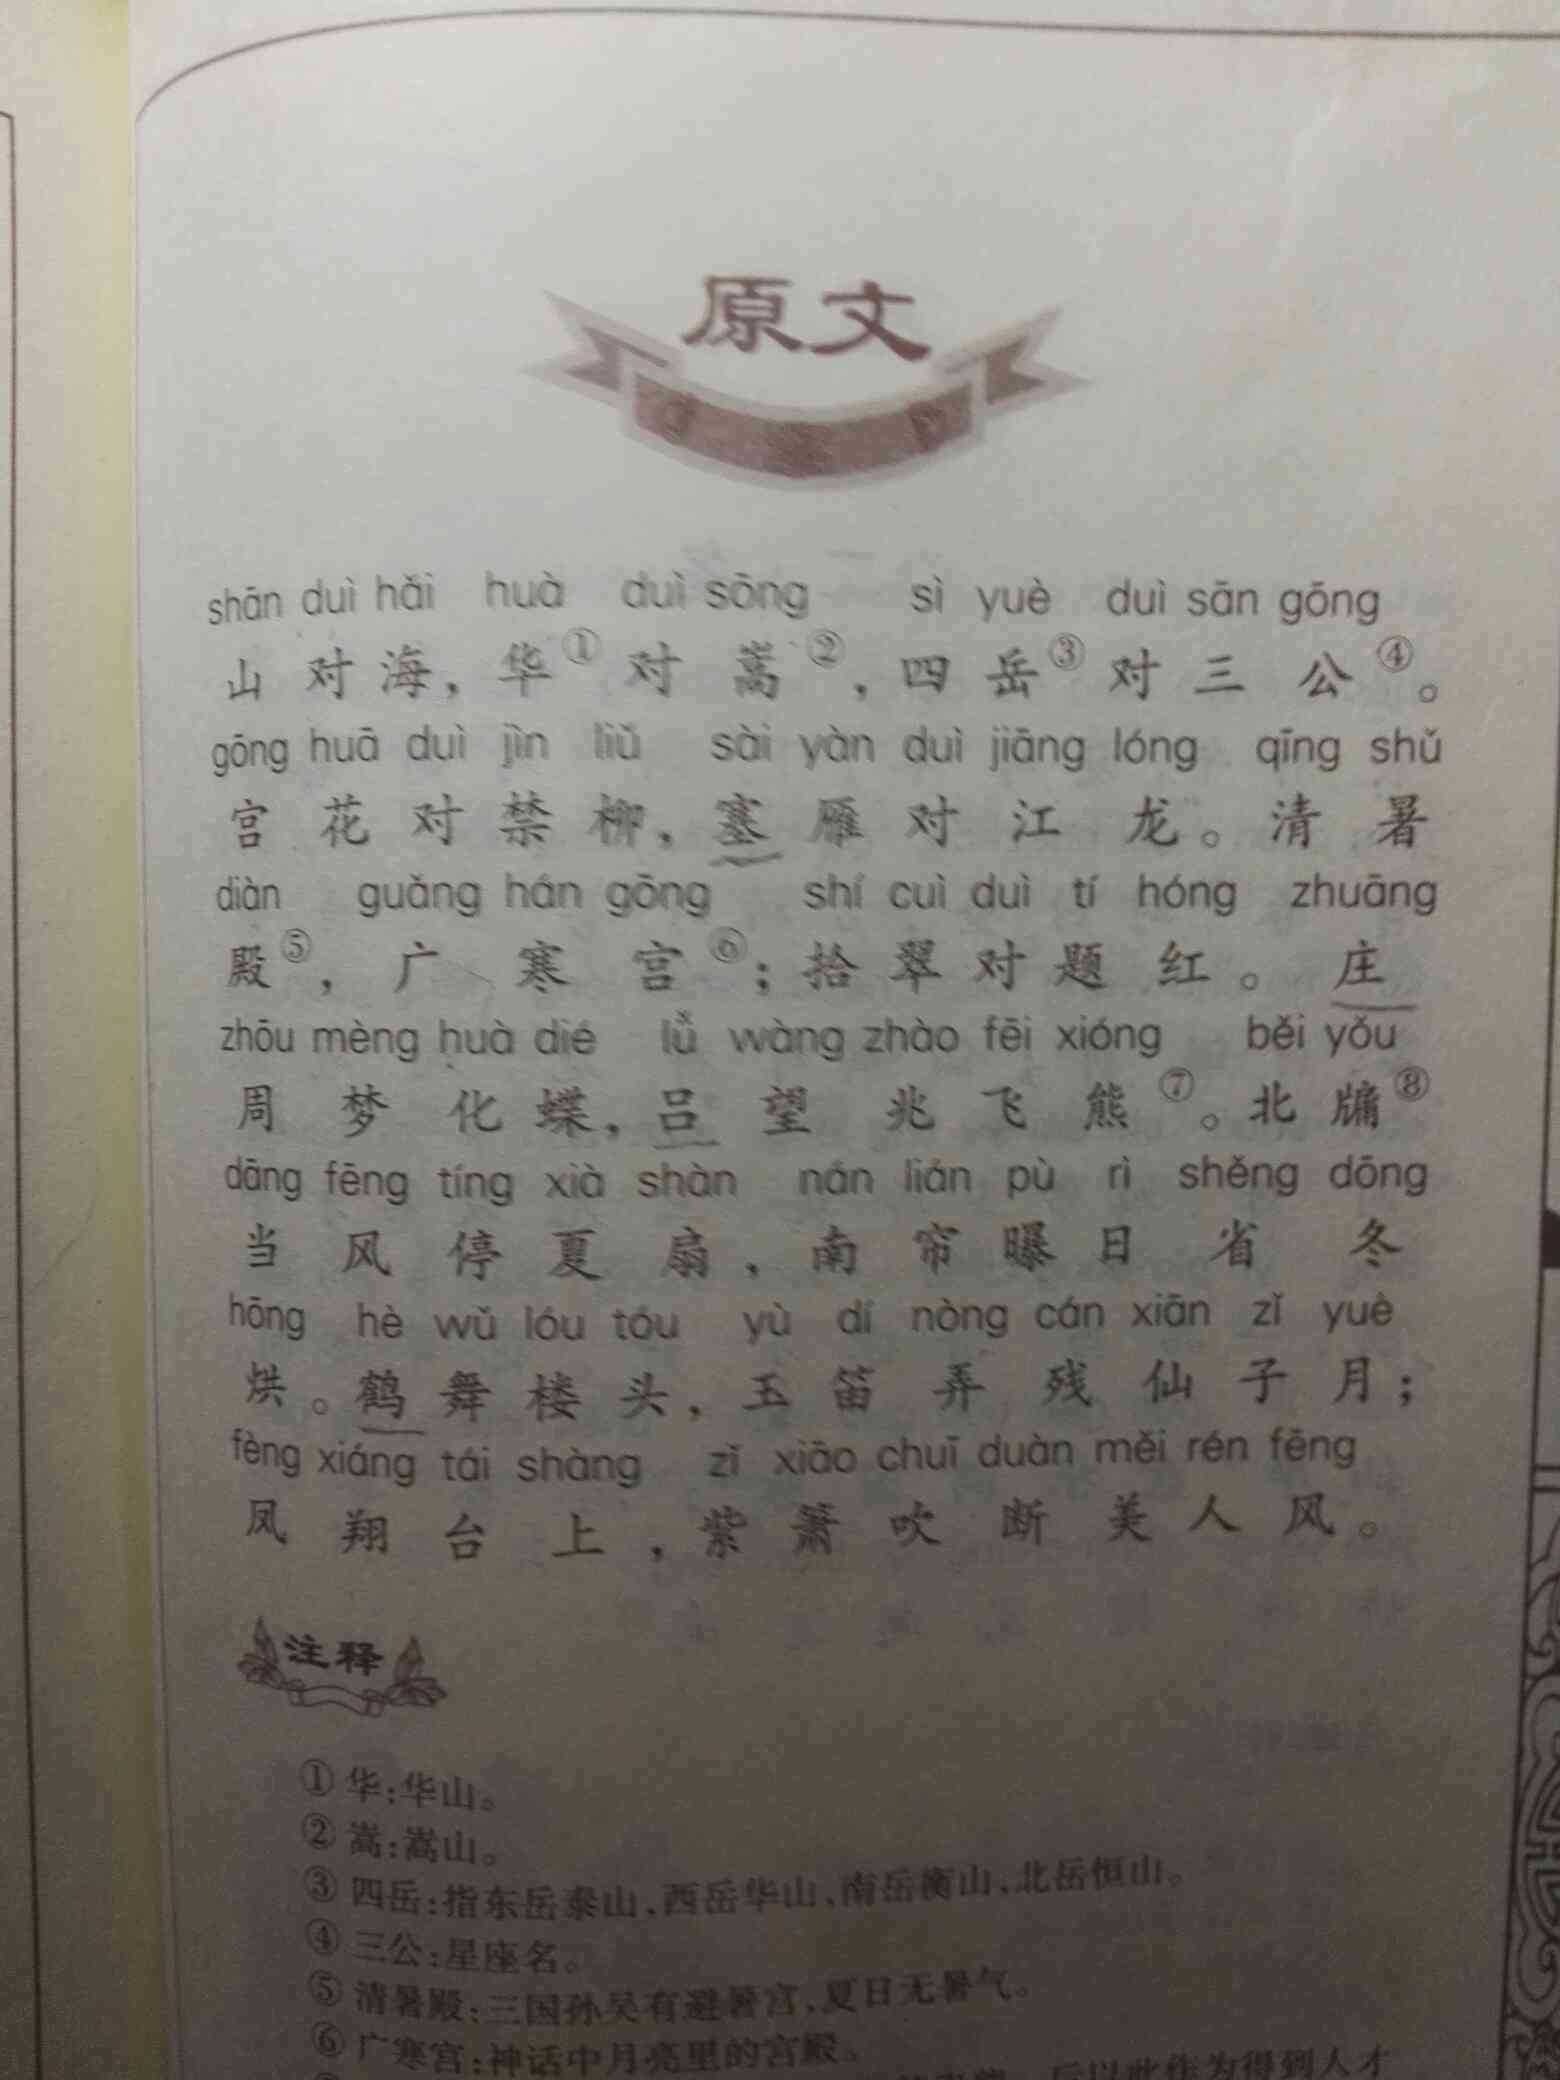 原文
shān duì hǎi huà duì sōng sì yuè duì sān gōng
山对海，华①对嵩②，四岳③对三公④。
gōng huā duì jìn liǔ sài yàn duì jiāng lóng qīng shǔ
宫花对禁柳，塞雁对江龙。清暑
diàn guǎng hán gōng shí cuì duì tí hóng zhuāng
殿⑤，广寒宫⑥；拾翠对题红。庄
zhōu mèng huà dié lǚ wàng zhào fēi xióng běi yǒu
周梦化蝶，吕望兆飞熊⑦。北牖⑧
dāng fēng tíng xià shàn nán lián pù rì shěng dōng
当风停夏扇，南帘曝日省冬
hōng hè wǔ lóu tóu yù dí nòng cán xiān zǐ yuè
烘。鹤舞楼头，玉笛弄残仙子月；
fèng xiáng tái shàng zǐ xiāo chuī duàn měi rén fēng
凤翔台上，紫箫吹断美人风。
注释
①华：华山。
②嵩：嵩山。
③四岳：指东岳泰山、西岳华山、南岳衡山、北岳恒山。
④三公：星座名。
⑤清暑殿：三国孙吴有避暑宫，夏日无暑气。
⑥广寒宫：神话中月亮里的宫殿。
后以此作为得到人才